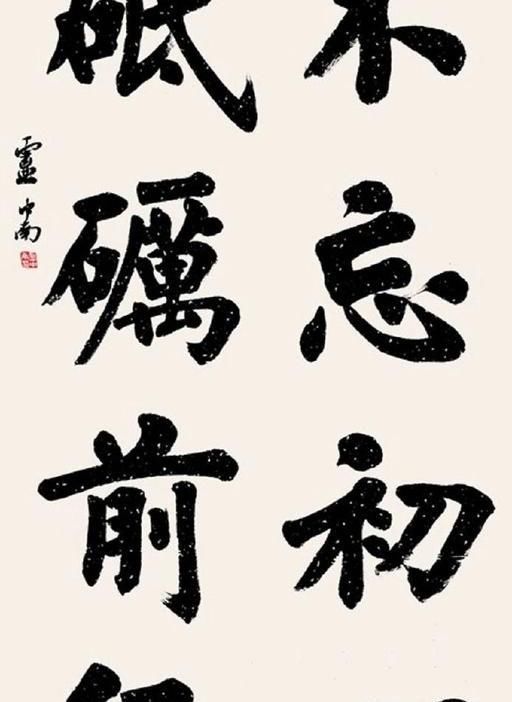 不忘初
砥礪前行
靈中南